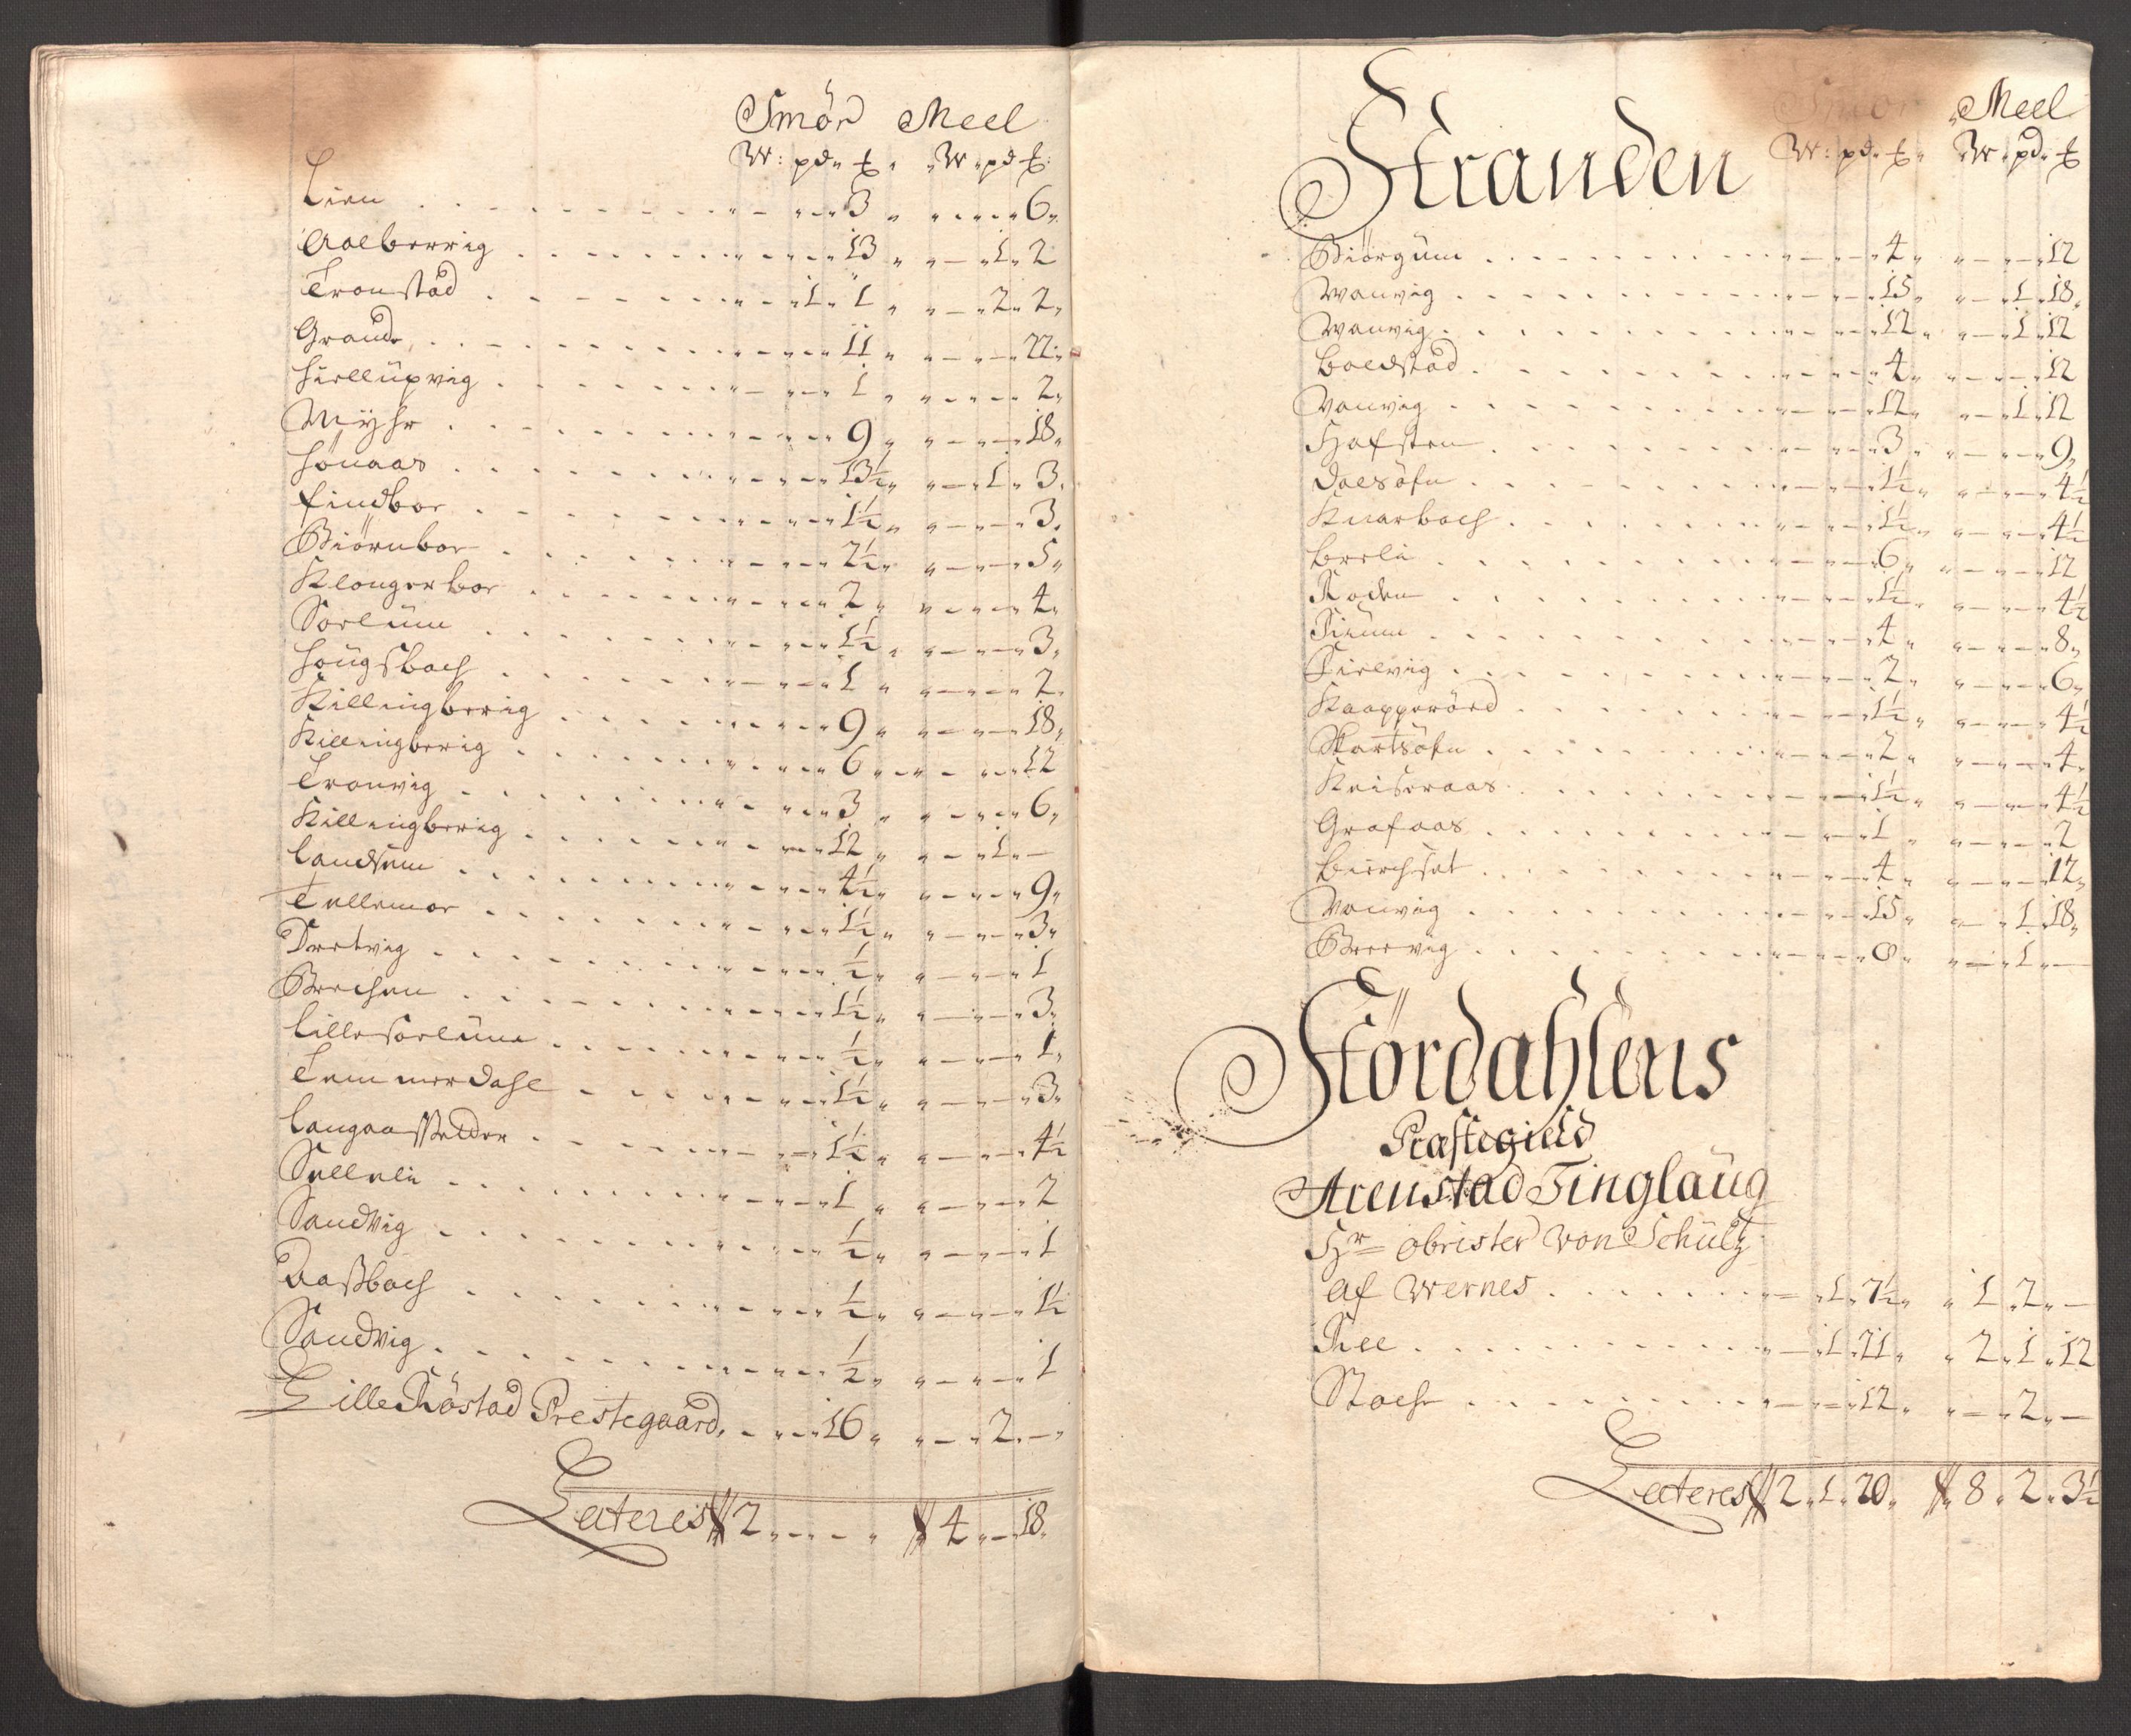 Smör Meel
W: pd. ℔. W. pd ℔:
Lien 3 6
Aalberrig 13 1. 2
Tronstad 1. 1 2. 2
Grande 11 22
Hiellüpvig 1 2
Myhr 9 18
Hönaas 13½ 1. 3
Findbor 1½ 3
Biörnbor 2½ 5
Klongerbor 2 4
Sorlüm 1½ 3
Hougsbach 1 2
Killingberrig 9 18
Killingberig 6 12
Tronvig 3 6
Killingberig 12 1. –
Landsem 4½ 9
Tellemor 1½ 3
Dretvig ½ 1
Brechen 1½ 3
Lille Sorlüm ½ 1
Temmerdahl 1½ 3
Langaasskelder 1½ 4½
Selleli 1 2
Sandvig ½ 1
Daßbach ½ 1½
Sandvig ½ 1
Lille Röstad Prestegaard 16 2. –
Lateres 2 – – 4 – 18
Smör Meel
Stranden W: pd. ℔. W. pd. ℔
Biörgüm 4 12
Wanvig 15 1. 18
Wanvig 12 1. 12
Boldstad 4 12
Vanvig 12 1. 12
Hafsten 3 9
Dalsöfn 1½ 4½
Knarbach 1½ 4½
Berli 6 12
Roden 1½ 4½
Sieum 4 8
Sielvig 2 6
Kaapperöed 1½ 4½
Skartsöfn 2 4
Kneiseraas 1½ 4½
Grafaas 1 2
Bierchset 4 12
Vanvig 15 1. 18
Brervig 8 1. –
Stördahlens
Præstegield
Arenstad Tinglaüg
Hr Obrister von Schültz
af Wernes 1. 7½ 1. 2. –
Ree 1. 21 2. 1. 12
Stochr 12 2. –
Lateres 2. 1. 20. 8. 2. 3½